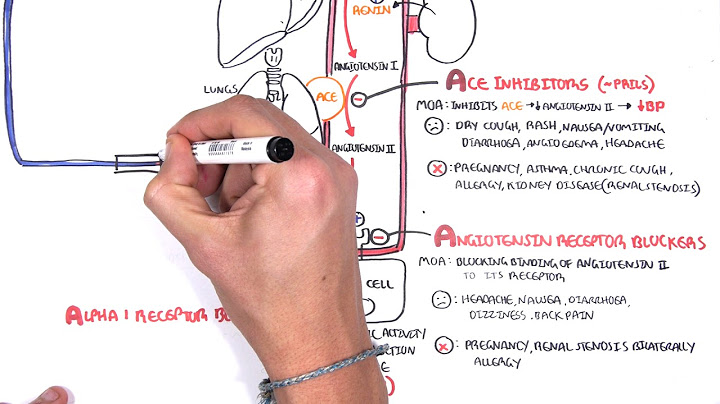 RENIN
ANGIOTENSIN I
LUNGS
ACE
ANGIOTENSIN II
ACE INHIBITORS (~PRILS)
MOA: INHIBITS ACE → ↓ ANGIOTENSIN II → ↓BP
: DRY COUGH, RASH, NAUSEA/VOMITING
DIARRHOEA, ANGIOEDEMA, HEADACHE
: PREGNANCY, ASTHMA, CHRONIC COUGH,
ALLERGY, KIDNEY DISEASE (RENAL STENOSIS)
ANGIOTENSIN RECEPTOR BLOCKERS
MOA: BLOCKING BINDING OF ANGIOTENSIN II
TO ITS RECEPTOR
: HEADACHE, NAUSEA, DIARRHOEA,
DIZZINESS, BACK PAIN
: PREGNANCY, RENAL STENOSIS BILATERALLY
ALLERGY
CELL
ALPHA 1 RECEPTOR
ACTIVITY